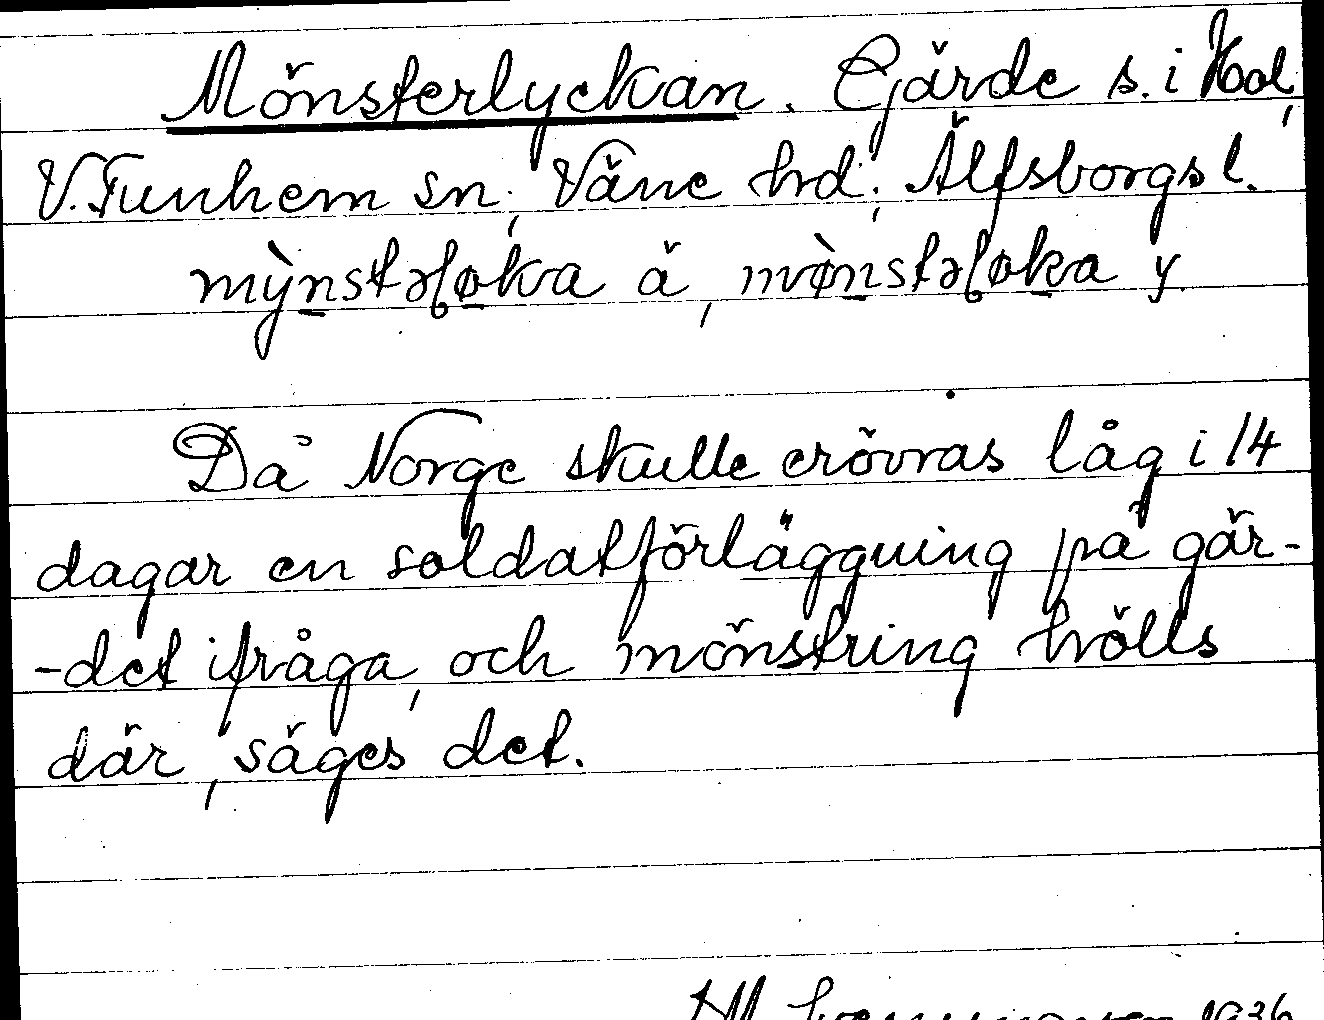 Mönsterlyckan. Gärde s. i Hol,
V. Tunhem sn, Väne hd, Älfsborgs l.
mỳnstəɼøka ä, mø̀nstəɼøka y.
Då Norge skulle erövras låg i 14
dagar en soldatförläggning på gär-
-det ifråga, och mönstring hölls
där, säges det.
1936